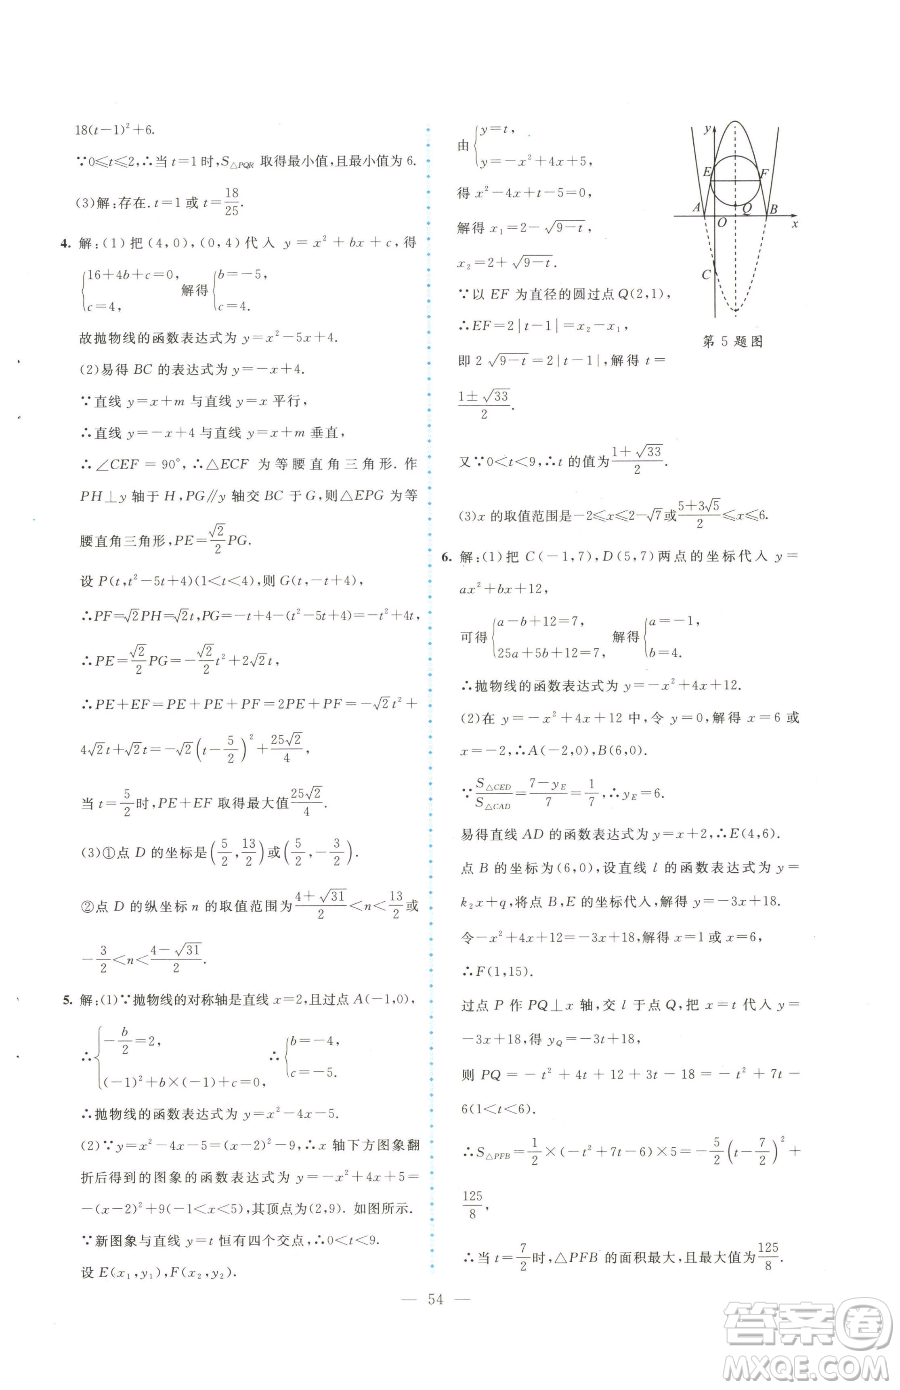 18(t−1)²+6.
∵0⩽t⩽2,∴当 t=1 时,S△PQR 取得最小值,且最小值为 6.
(3)解:存在. t=1 或 t=18/25.
4. 解:(1)把(4,0),(0,4)代入 y=x²+bx+c,得
{16+4b+c=0, c=4, 解得{b=−5, c=4.
故抛物线的函数表达式为 y=x²−5x+4.
(2)易得 BC 的表达式为 y=−x+4.
∵直线 y=x+m 与直线 y=x 平行,
∴直线 y=−x+4 与直线 y=x+m 垂直,
∴∠CEF=90°,∴△ECF 为等腰直角三角形. 作
PH⊥y 轴于 H,PG∥y 轴交 BC 于 G,则△EPG 为等
腰直角三角形,PE=√2/2 PG.
设 P(t,t²−5t+4)(1<t<4),则 G(t,−t+4),
∴PF=√2PH=√2t,PG=−t+4−(t²−5t+4)=−t²+4t,
∴PE=√2/2 PG=−√2/2 t²+2√2t,
∴PE+EF=PE+PE+PF=2PE+PF=−√2t²+
4√2t+√2t=−√2(t−5/2)²+25√2/4,
当 t=5/2 时,PE+EF 取得最大值 25√2/4.
(3)①点 D 的坐标是(5/2,13/2)或(5/2,−3/2).
②点 D 的纵坐标 n 的取值范围为 (4+√31)/2<n<13/2 或
−3/2<n<(4−√31)/2.
5. 解:(1)∵抛物线的对称轴是直线 x=2,且过点 A(−1,0),
∴{−b/2=2, (−1)²+b×(−1)+c=0, ∴{b=−4, c=−5.
∴抛物线的函数表达式为 y=x²−4x−5.
(2)∵y=x²−4x−5=(x−2)²−9,∴x 轴下方图象翻
折后得到的图象的函数表达式为 y=−x²+4x+5=
−(x−2)²+9(−1<x<5),其顶点为(2,9). 如图所示.
∵新图象与直线 y=t 恒有四个交点,∴0<t<9.
设 E(x₁,y₁),F(x₂,y₂).
由{y=t, y=−x²+4x+5,
得 x²−4x+t−5=0,
解得 x₁=2−√(9−t),
x₂=2+√(9−t).
∵以 EF 为直径的圆过点 Q(2,1),
∴EF=2|t−1|=x₂−x₁,
即 2√(9−t)=2|t−1|,解得 t=
(1±√33)/2.
又∵0<t<9,∴t 的值为 (1+√33)/2.
(3)x 的取值范围是−2⩽x⩽2−√7或(5+3√5)/2⩽x⩽6.
y
E
F
A
O
Q
B
x
C
第 5 题图
6. 解:(1)把 C(−1,7),D(5,7)两点的坐标代入 y=
ax²+bx+12,
可得{a−b+12=7, 25a+5b+12=7, 解得{a=−1, b=4.
∴抛物线的函数表达式为 y=−x²+4x+12.
(2)在 y=−x²+4x+12 中,令 y=0,解得 x=6 或
x=−2,∴A(−2,0),B(6,0).
∵S△CED/S△CAD=(7−yE)/7=1/7,∴yE=6.
易得直线 AD 的函数表达式为 y=x+2,∴E(4,6).
点 B 的坐标为(6,0),设直线 l 的函数表达式为 y=
k₂x+q,将点 B,E 的坐标代入,解得 y=−3x+18.
令−x²+4x+12=−3x+18,解得 x=1 或 x=6,
∴F(1,15).
过点 P 作 PQ⊥x 轴,交 l 于点 Q,把 x=t 代入 y=
−3x+18,得 yQ=−3t+18,
则 PQ=−t²+4t+12+3t−18=−t²+7t−
6(1<t<6).
∴S△PFB=1/2×(−t²+7t−6)×5=−5/2(t−7/2)²+
125/8,
∴当 t=7/2 时,△PFB 的面积最大,且最大值为 125/8.
— 54 —
答案圈
MXQE.COM